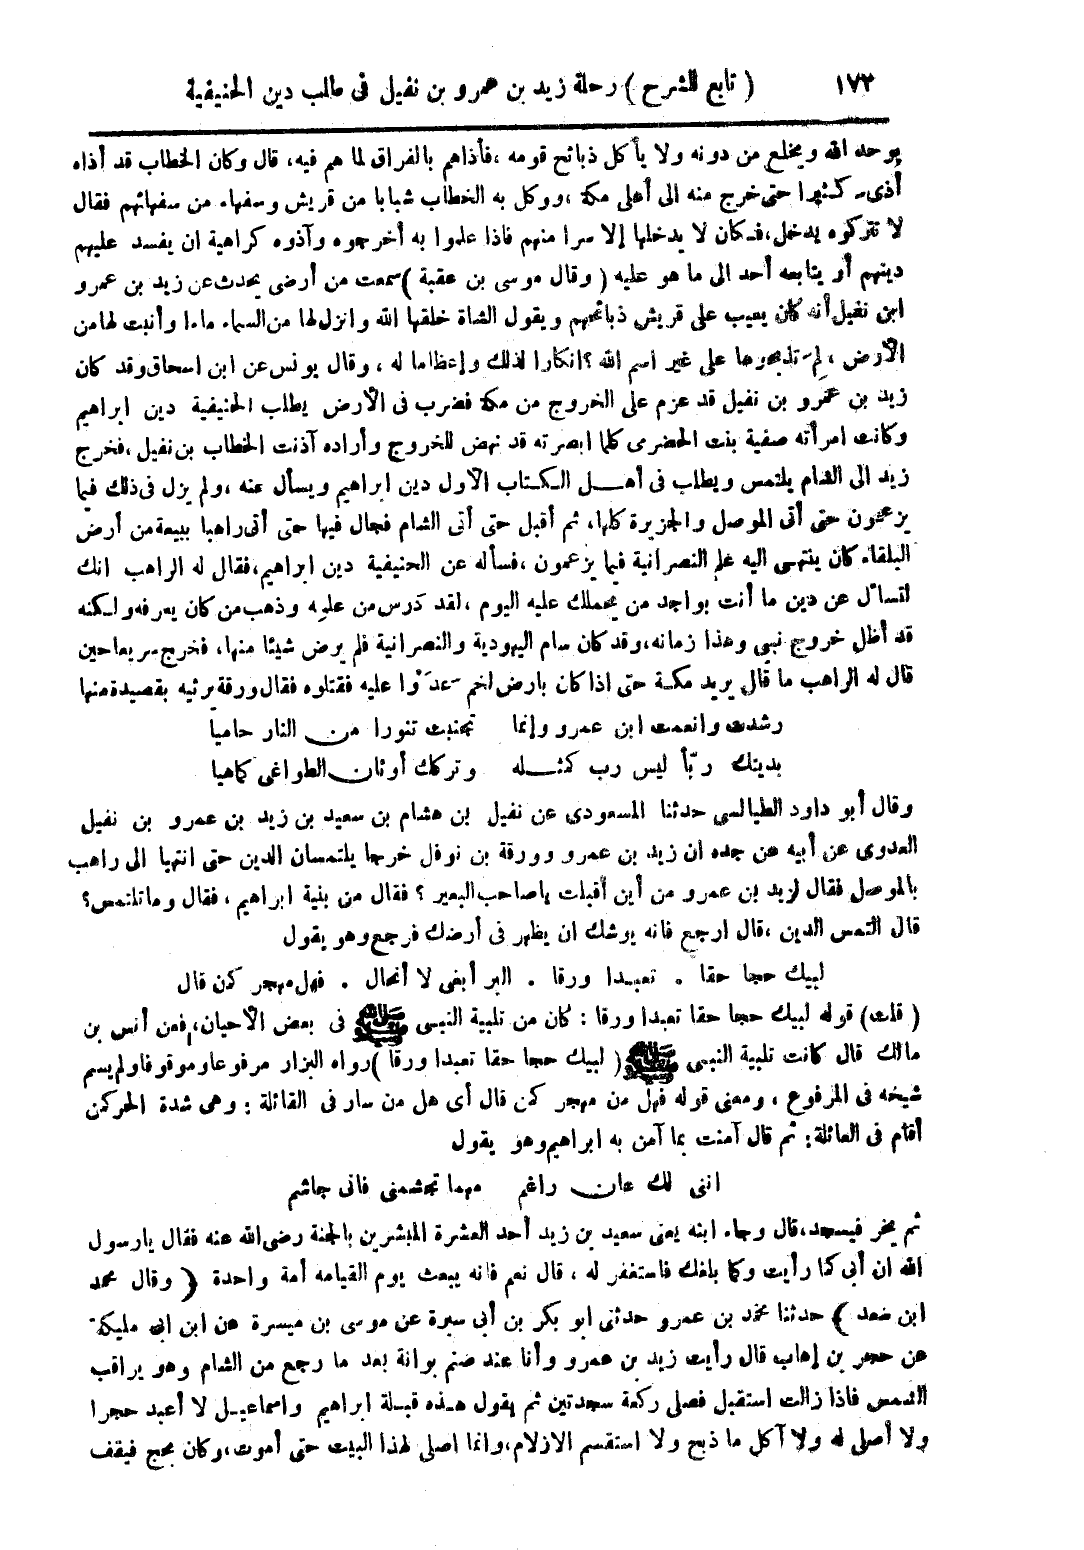 ١٧٢ ( تابع الشرح ) رحلة زيد بن عمرو بن نفيل فى طلب دين الحنيفية
يوحد الله ويخلع من دونه ولا يأكل ذبائح قومه ،فأذاهم بالفراق لما هم فيه، قال وكان الخطاب قد أذاه
أذى كثيرا حتى خرج منه الى أعلى مكة ،ووكل به الخطاب شبابا من قريش وسفهاء من سفهائهم فقال
لا تتركوه يدخل،فكان لا يدخلها إلا سرا منهم فاذا علموا به أخرجوه وآذوه كراهية ان يفسد عليهم
دينهم أو يتابعه أحد الى ما هو عليه ( وقال موسى بن عقبة )سمعت من أرضى يحدث عن زيد بن عمرو
ابن نفيل أنه كان يعيب على قريش ذبائحهم ويقول الشاة خلقها الله وانزل لها من السماء ماءا وأنبت لها من
الأرض ، لِم تذبحوها على غير اسم الله ؟انكارا لذلك وإعظاما له ، وقال يونس عن ابن اسحاق وقد كان
زيد بن عمرو بن نفيل قد عزم على الخروج من مكة فضرب فى الأرض يطلب الحنيفية دين ابراهيم
وكانت امرأته صفية بنت الحضرى كلما ابصرته قد نهض للخروج وأراده آذنت الخطاب بن نفيل ،فخرج
زيد الى الشام يلتمس ويطلب فى أهل الكتاب الأول دين ابراهيم ويسأل عنه ،ولم يزل فى ذلك فيما
يزعمون حتى أتى الموصل والجزيرة كلها، ثم أقبل حتى أتى الشام فجال فيها حتى أتى راهبا ببيعة من أرض
البلقاء كان ينتهى اليه علم النصرانية فيما يزعمون ،فسأله عن الحنيفية دين ابراهيم،فقال له الراهب انك
لتسأل عن دين ما أنت بواجد من يحملك عليه اليوم ،لقد دَرس من علمه وذهب من كان يعرفه ولكنه
قد أظل خروج نبي وهذا زمانه،وقد كان سام اليهودية والنصرانية فلم يرض شيئا منها، فخرج سريعا حين
قال له الراهب ما قال يريد مكة حتى اذا كان بارض لخم عدَوْا عليه فقتلوه فقال ورقة يرثيه بقصيدة منها
رشدت وانعمت ابن عمرو وإنما تجنبت تنورا من النار حاميا
بدينك ربّاً ليس رب كمثله وتركك أوثان الطواغى كماهيا
وقال أبو داود الطيالسي حدثنا المسعودى عن نفيل بن هشام بن سعيد بن زيد بن عمرو بن نفيل
العدوى عن أبيه عن جده ان زيد بن عمرو وورقة بن نوفل خرجا يلتمسان الدين حتى انتهيا الى راهب
بالموصل فقال لزيد بن عمرو من أين أقبلت ياصاحب البعير ؟ فقال من بنية ابراهيم ، فقال وما تلتمس؟
قال التمس الدين ،قال ارجع فانه يوشك ان يظهر فى أرضك فرجع وهو يقول
لبيك حجا حقا . تعبدا ورقا . البر أبغى لا أنحال . فهل مهجر كمن قال
( قلت) قوله لبيك حجا حقا تعبدا ورقا : كان من تلبية النبى ﷺ فى بعض الأحيان، فعن أنس بن
مالك قال كانت تلبية النبى ﷺ ( لبيك حجا حقا تعبدا ورقا )رواه البزار مرفوعا وموقوفا ولم يسم
شيخه فى المرفوع ، ومعنى قوله فهل من مهجر كمن قال أى هل من سار فى القائلة : وهى شدة الحر كمن
أقام فى القائلة: ثم قال آمنت بما آمن به ابراهيم وهو يقول
اننى لك عان راغم مهما تجشمنى فانى جاشم
ثم يخر فيسجد،قال وجاء ابنه يعنى سعيد بن زيد أحد العشرة المبشرين بالجنة رضى الله عنه فقال يارسول
الله ان أبى كما رأيت وكما بلغك فاستغفر له ، قال نعم فانه يبعث يوم القيامه أمة واحدة ( وقال محمد
ابن سعد ) حدثنا محمد بن عمرو حدثنى ابو بكر بن أبى سبرة عن موسى بن ميسرة عن ابن ابى مليكة
عن حجر بن إهاب قال رأيت زيد بن عمرو وأنا عند صنم بوانة بعد ما رجع من الشام وهو يراقب
الشمس فاذا زالت استقبل فصلى ركعة سجدتين ثم يقول هذه قبلة ابراهيم واسماعيل لا أعبد حجرا
ولا أصلى له ولا آكل ما ذبح ولا استقسم الازلام،وانما اصلى لهذا البيت حتى أموت،وكان يحج فيقف